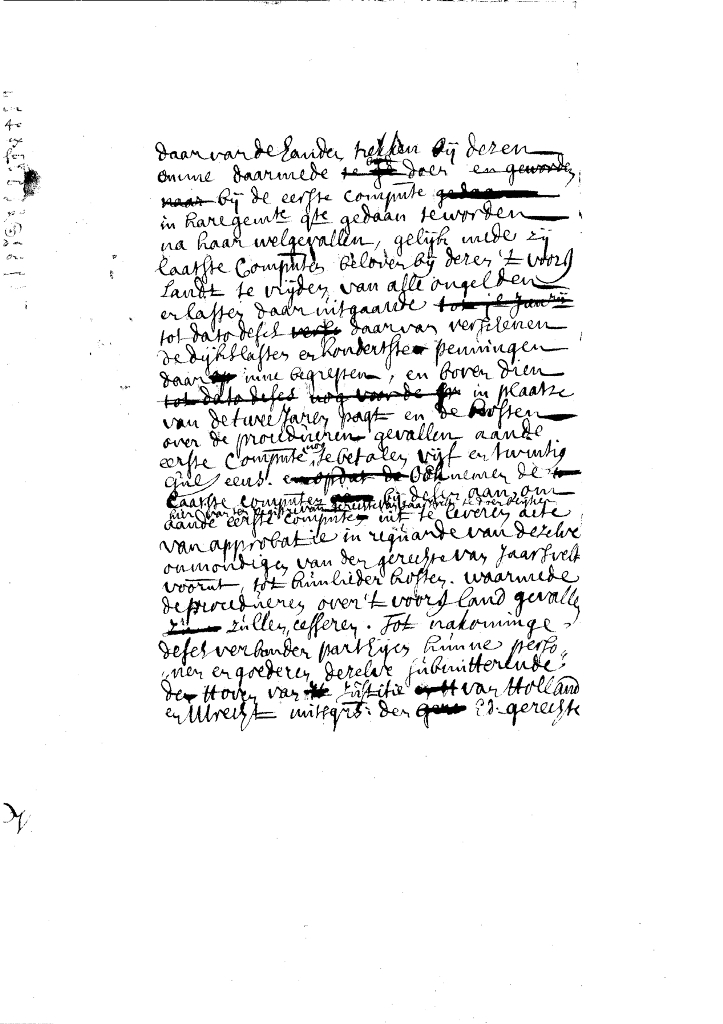 daar van de handen trekken bij dezen
omme daarmede te doen en geworden
naar bij de eerste Compnte gedaen
in hare gemte qte gedaan te worden
na haar welgevallen, gelijk mede zij
laatste Compnten beloven bij deren 't voors
Landt te vrijden van alle ongelden
en lasten daar uitgaande tot
tot dato deses daarvan verschenen
de dijkslasten en hondertste penningen
daar inne begrepen, en boven dien
tot dato deses nog voor de in plaatse
van de twee Jaren pagt en de kosten
over de proceduren gevallen aan de
eerste Compnte nog te betalen vijf en twintig
Gul eens. en nemen de
Laatste Compnten bij desen aan om
aan de eerste Compnten uit te leveren acte
van approbatie in reguarde van dezelve
onmondigen van den gerechte van Jaarsvelt
voornt, tot hunlieder kosten. waarmede
de proceduren over 't voors land gevallen
zijn zullen cesseren. Tot nakominge
deses verbinden partijen hunne perso-
nen en goederen dezelve submitterende
den Hoven van Justitie van Holland
en Utrecht mitsgrs: den Ed: gerechte